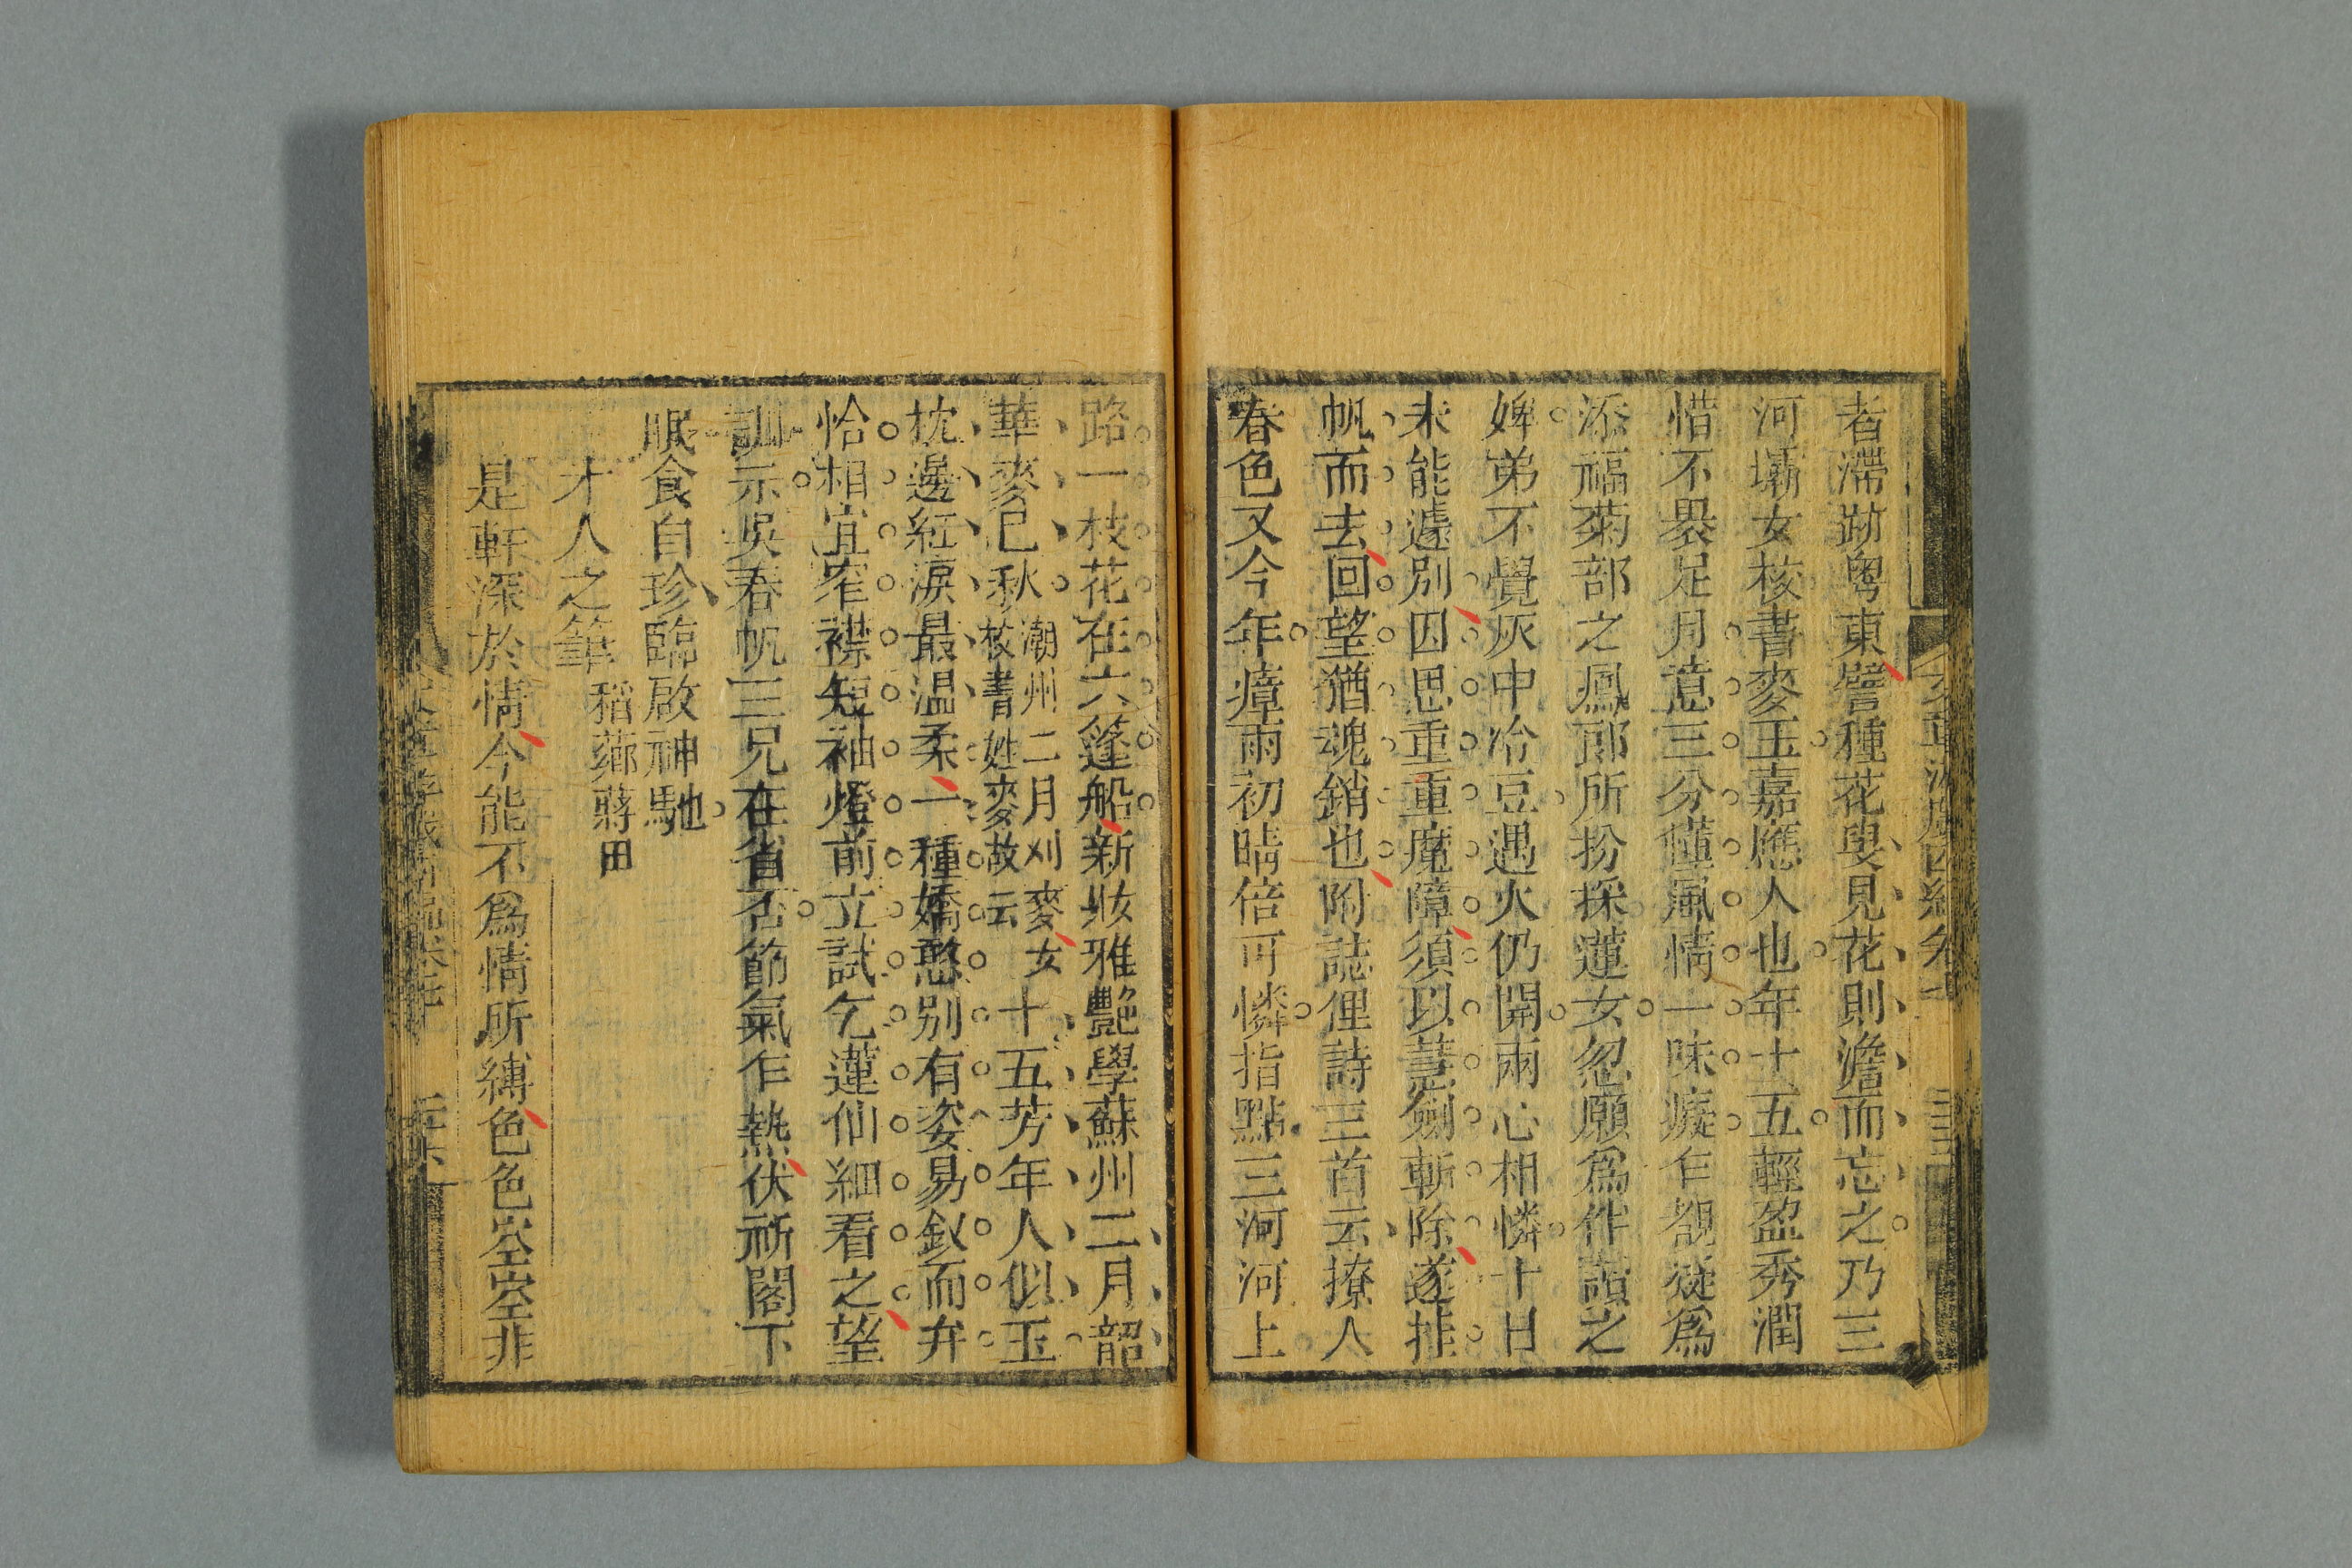 者滯跡粤東譬種花叟見花則澹而忘之乃三
河壩女校書麥玉嘉應人也年十五輕盈秀潤
惜不裹足月意三分憨風情一味癡乍覩疑爲
添福菊部之鳳郎所扮採蓮女忽願爲作諧之
婢弟不覺灰中冷豆遇火仍開兩心相憐十日
未能遽別因思重重魔障須以慧劍斬除遂挂
帆而去回望猶魂銷也附誌俚詩三首云撩人
春色又今年瘴雨初晴倍可憐指點三河河上
路一枝花在六篷船新妝雅艷學蘇州二月韶
華麥已秋潮州二月刈麥女校書姓麥故云十五芳年人似玉
枕邊紅淚最温柔一種嬌憨別有姿易釵而弁
恰相宜窄襟短袖燈前立試乞蓮仙細看之望
訓示吳春帆三兄在省否節氣乍熱伏祈閣下
眠食自珍臨啟神馳
才人之筆稻薌蔣田
是軒深於情今能不爲情所縛色色空空非